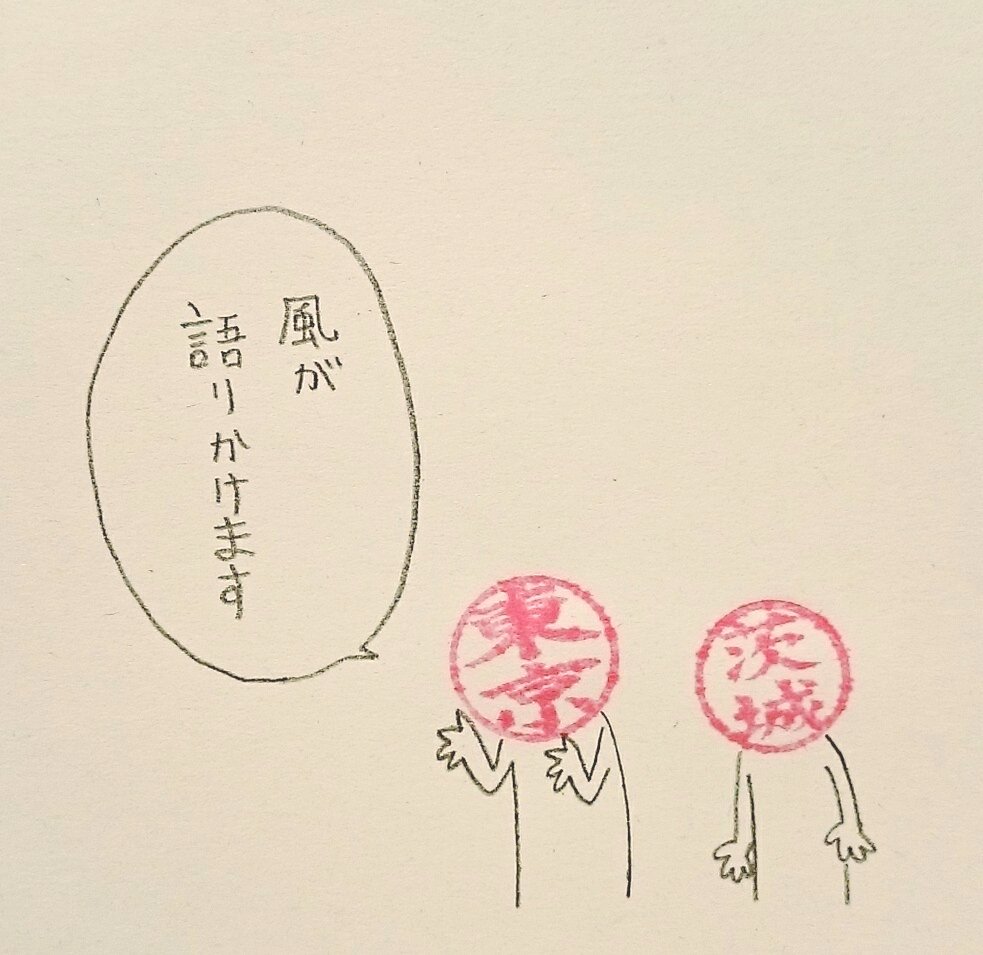 風が
語りかけます
東京
茨城